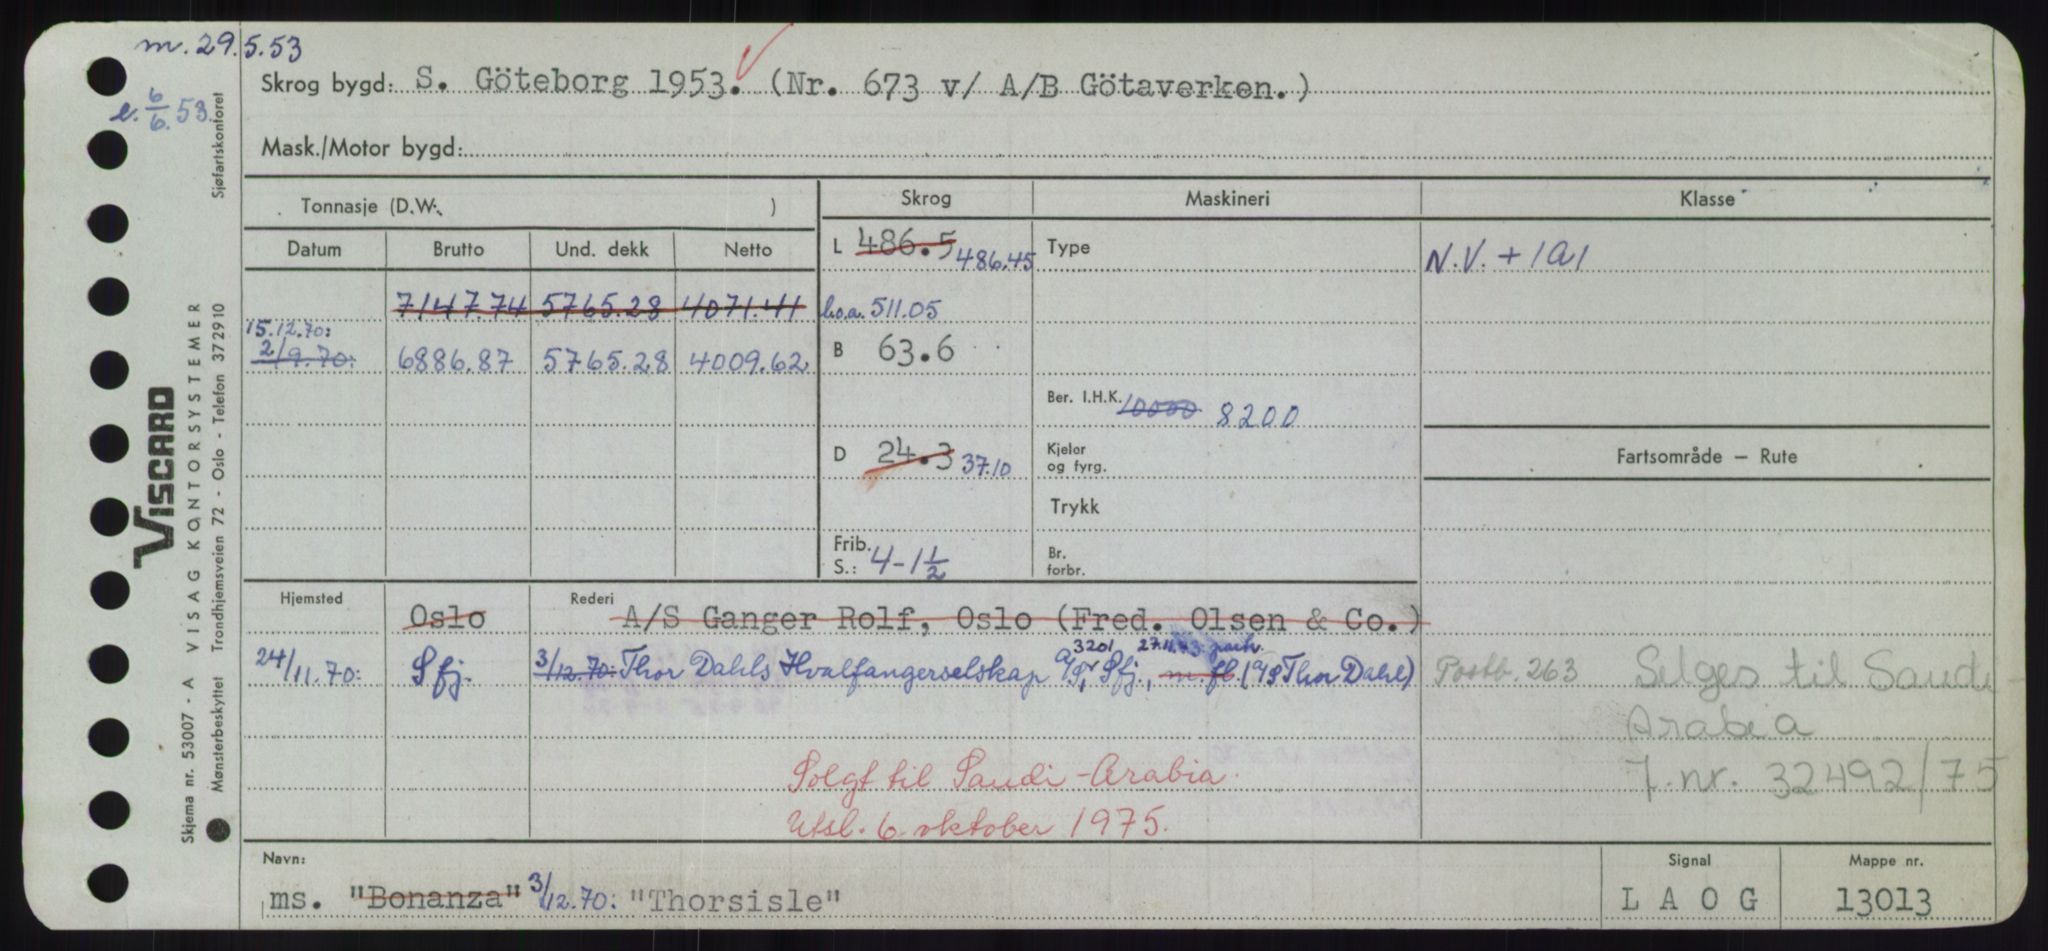 m. 29.5.53
e. 6/6.53.
Skrog bygd: S. Göteborg 1953. (Nr. 673 v/ A/B Götaverken.)
Mask./Motor bygd:
Tonnasje (D.W. )
Skrog
Maskineri
Klasse
Datum Brutto Und. dekk Netto
L 486.5 486.45
Type
N.V. + 1A1
7147.74 5765.28 4071.41
l.o.a. 511.05
15.12.70:
2/9.70: 6886.87 5765.28 4009.62
B 63.6
Ber. I.H.K. 10000 8200
D 24.3 37.10
Kjeler
og fyrg.
Fartsområde – Rute
Trykk
Frib.
S.: 4-1½
Br.
forbr.
Hjemsted Oslo
Rederi A/S Ganger Rolf, Oslo (Fred. Olsen & Co.)
3201 27.11.73: partr.
24/11.70: Sfj. 3/12.70: Thor Dahls Hvalfangerselskap A/S, Sfj., m. fl. (A/S Thor Dahl) Postb. 263
Selges til Saudi-
Arabia
J.nr. 32492/75
Solgt til Saudi-Arabia.
Utsl. 6. oktober 1975.
Navn:
ms. "Bonanza" 3/12.70: "Thorsisle"
Signal
L A O G
Mappe nr.
13013
VISCARD
VISAG KONTORSYSTEMER
Skjema nr. 53007 - A
Mønsterbeskyttet Trondhjemsveien 72 - Oslo - Telefon 372910
Sjøfartskontoret